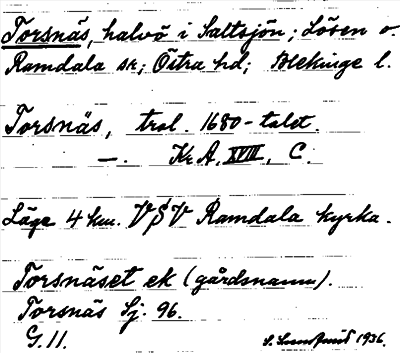 Torsnäs, halvö i Saltsjön; Lösen o.
Ramdala sr; Östra hd; Blekinge l.
Torsnäs, trol. 1680-talet.
—. Kr A, XVIII, C.
Läge 4 km. VSV Ramdala kyrka.
Torsnäset ek (gårdsnamn).
Torsnäs Sj. 96.
G. 11.
S. Lundquist 1936.